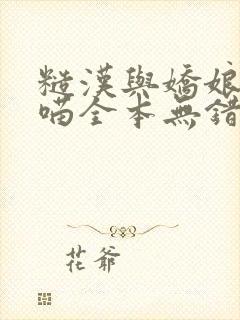 糙漢與嬌娘
喵全本無錯
花爺